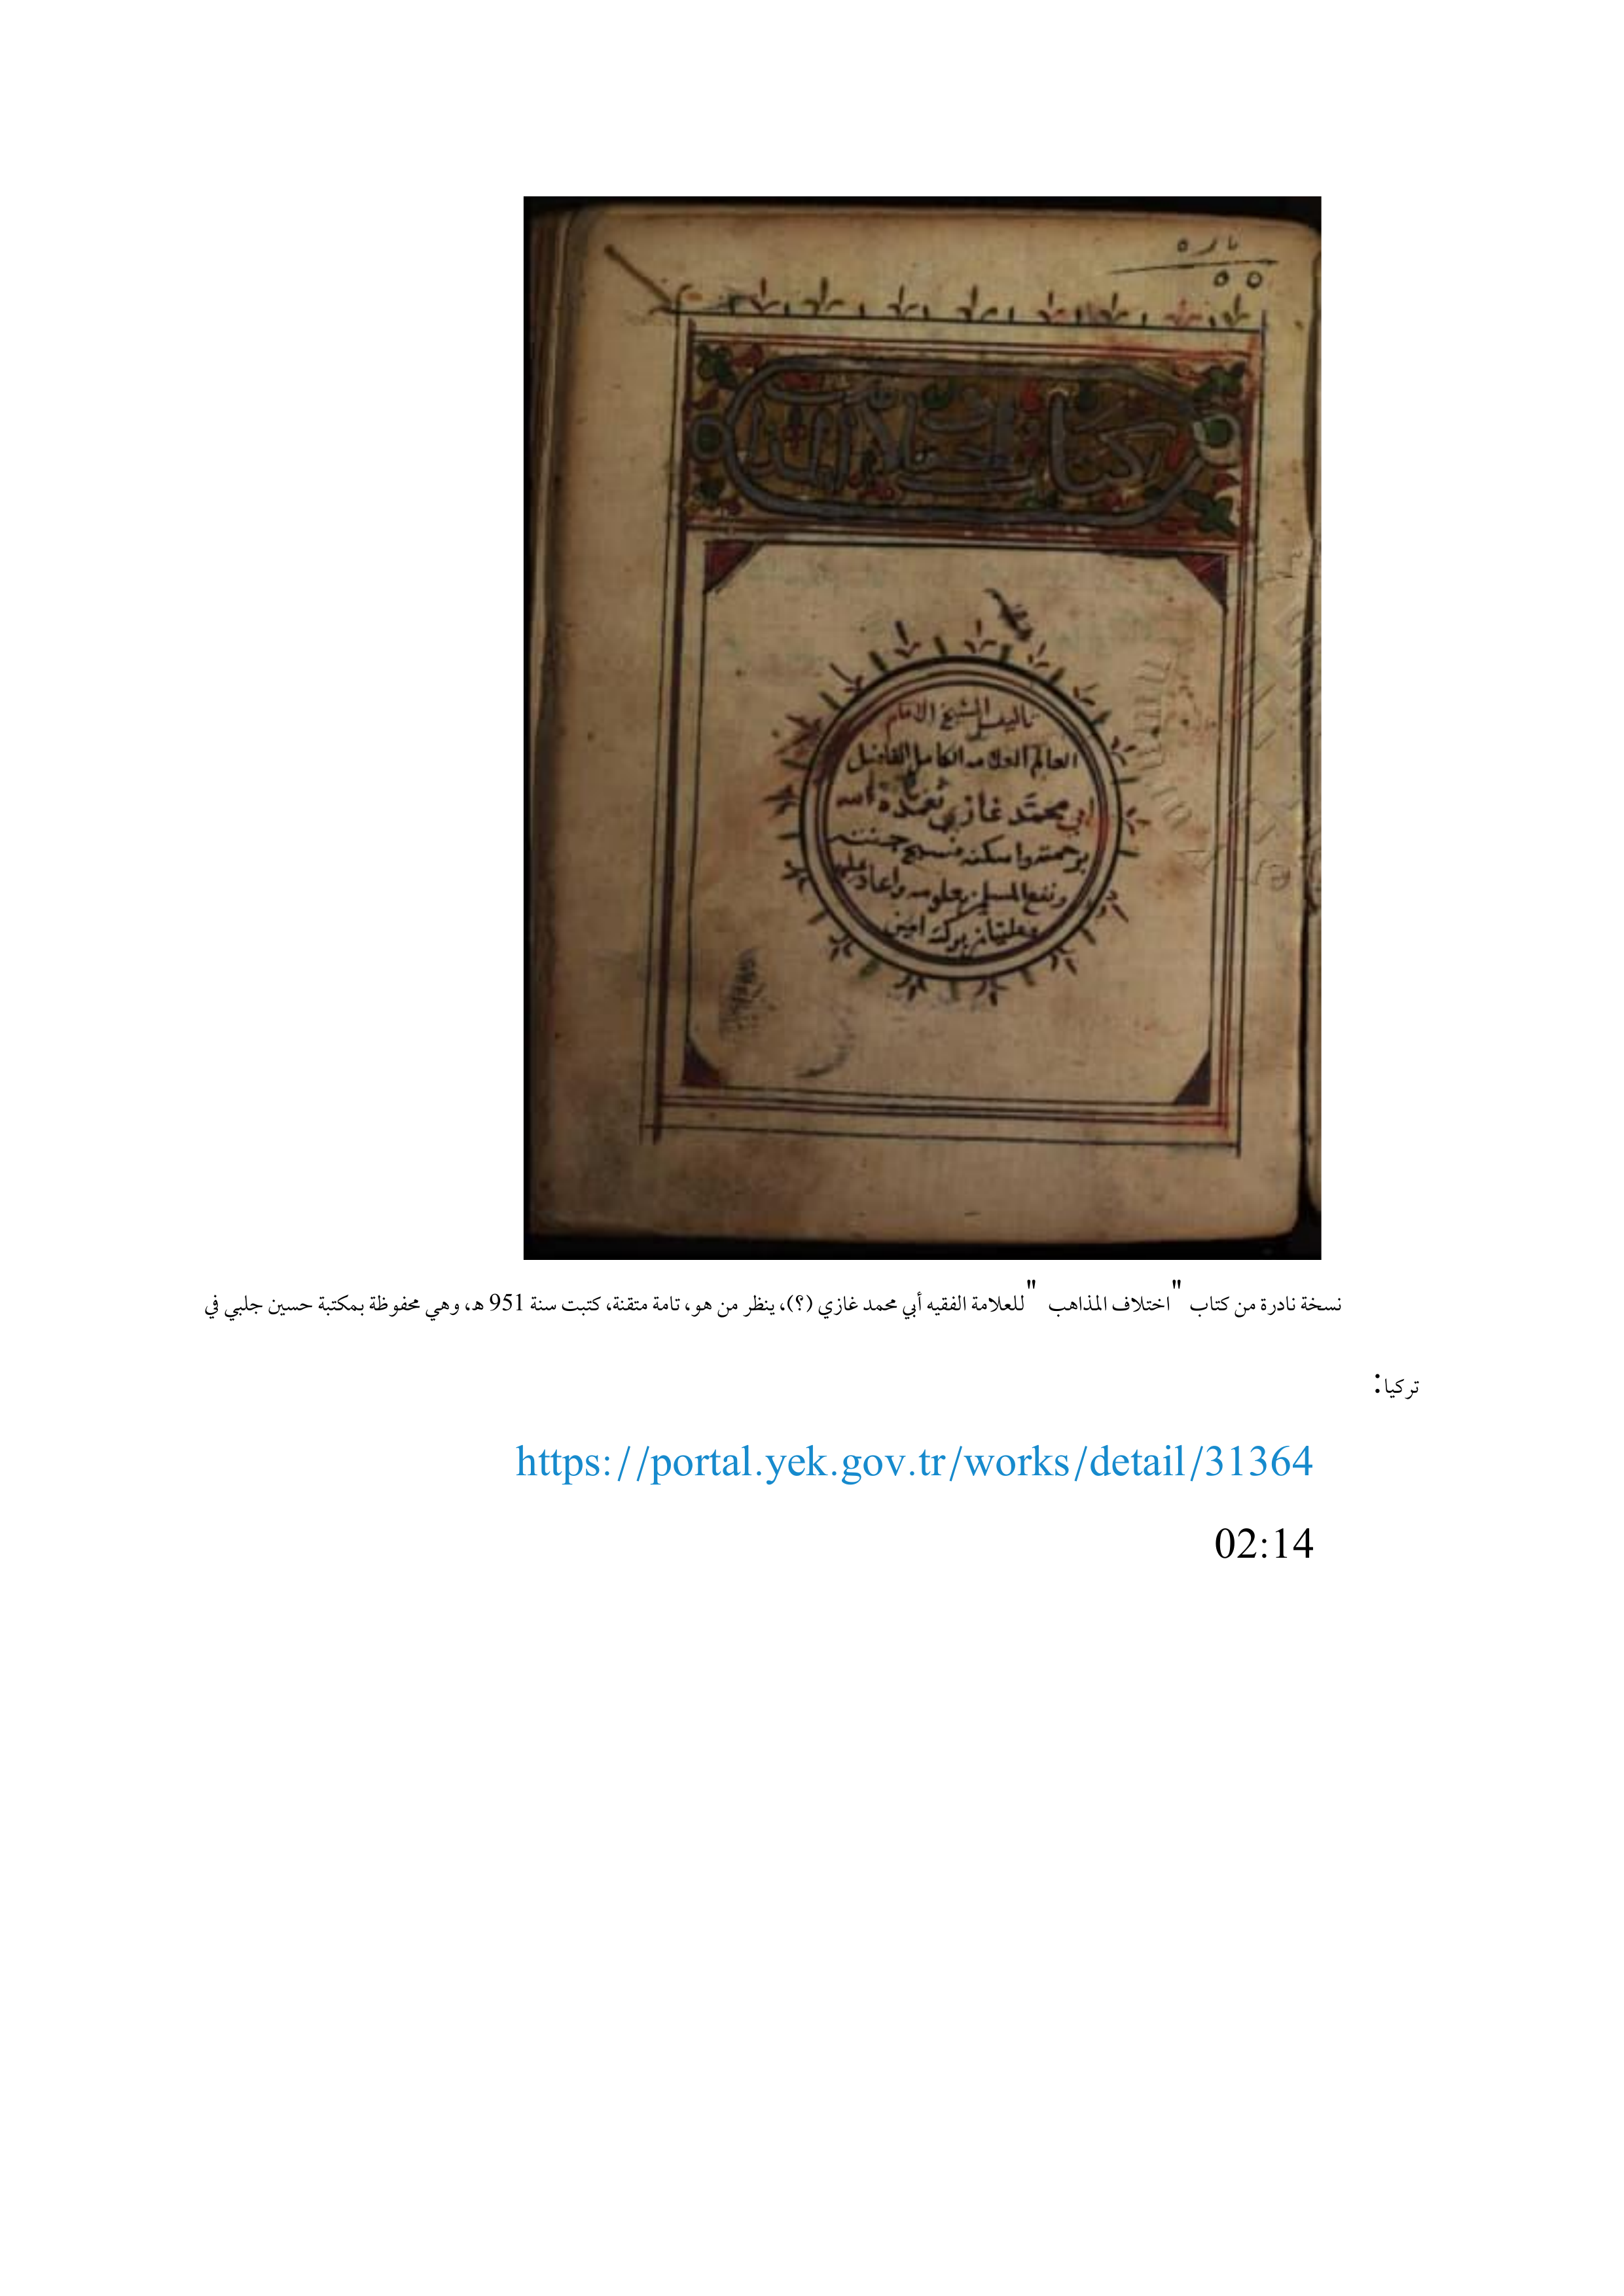 كتاب اختلاف المذاهب
تاليف الشيخ الامام
العالم العلامه الكامل الفاضل
ابي محمد غازي تغمده الله
برحمته واسكنه فسيح جنته
ونفع المسلمين بعلومه واعاد عليه
وعلينا من بركته امين
نسخة نادرة من كتاب "اختلاف المذاهب" للعلامة الفقيه أبي محمد غازي (؟)، ينظر من هو، تامة متقنة، كتبت سنة 951 هـ، وهي محفوظة بمكتبة حسين جلبي في
تركيا:
https://portal.yek.gov.tr/works/detail/31364
02:14